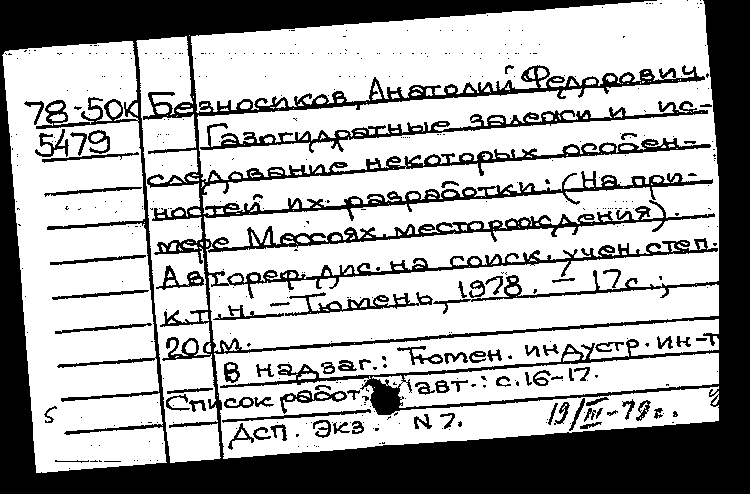 78-50к Безносиков, Анатолий Федорович.
5479 Газогидратные залежи и ис-
следование некоторых особен-
ностей их разработки: (На при-
мере Мессоях. месторождения).
Автореф. дис. на соиск. учен. степ.
к.т.н. - Тюмень, 1978. - 17с.;
20см.
В надзаг.: Тюмен. индустр. ин-т
Список работ авт.: с.16-17.
Дсп. Экз. N 7. 19/III-79г.
s